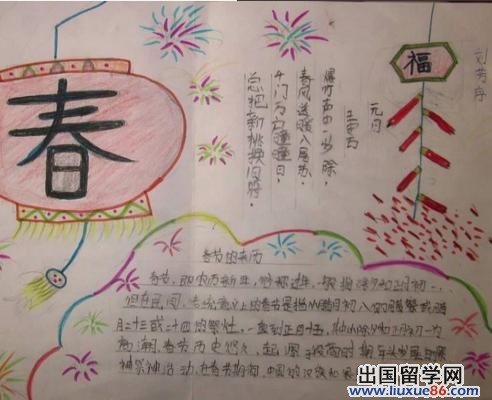 春
福
元日
王安石
爆竹声中一岁除，
春风送暖入屠苏。
千门万户瞳瞳日。
总把新桃换旧符。
春节的来历
春节，即农历新年，俗称过年，一般指除夕和正月初一。
但在民间，传统意义上的春节是指从腊月初八的腊祭或腊
月二十三或二十四的祭灶，一直到正月十五，其中以除夕和正月初一为
高潮。春节历史悠久，起源于殷商时期年头岁尾的祭
神祭祖活动。在春节期间，中国的汉族和
出国留学网
www.liuxue86.com